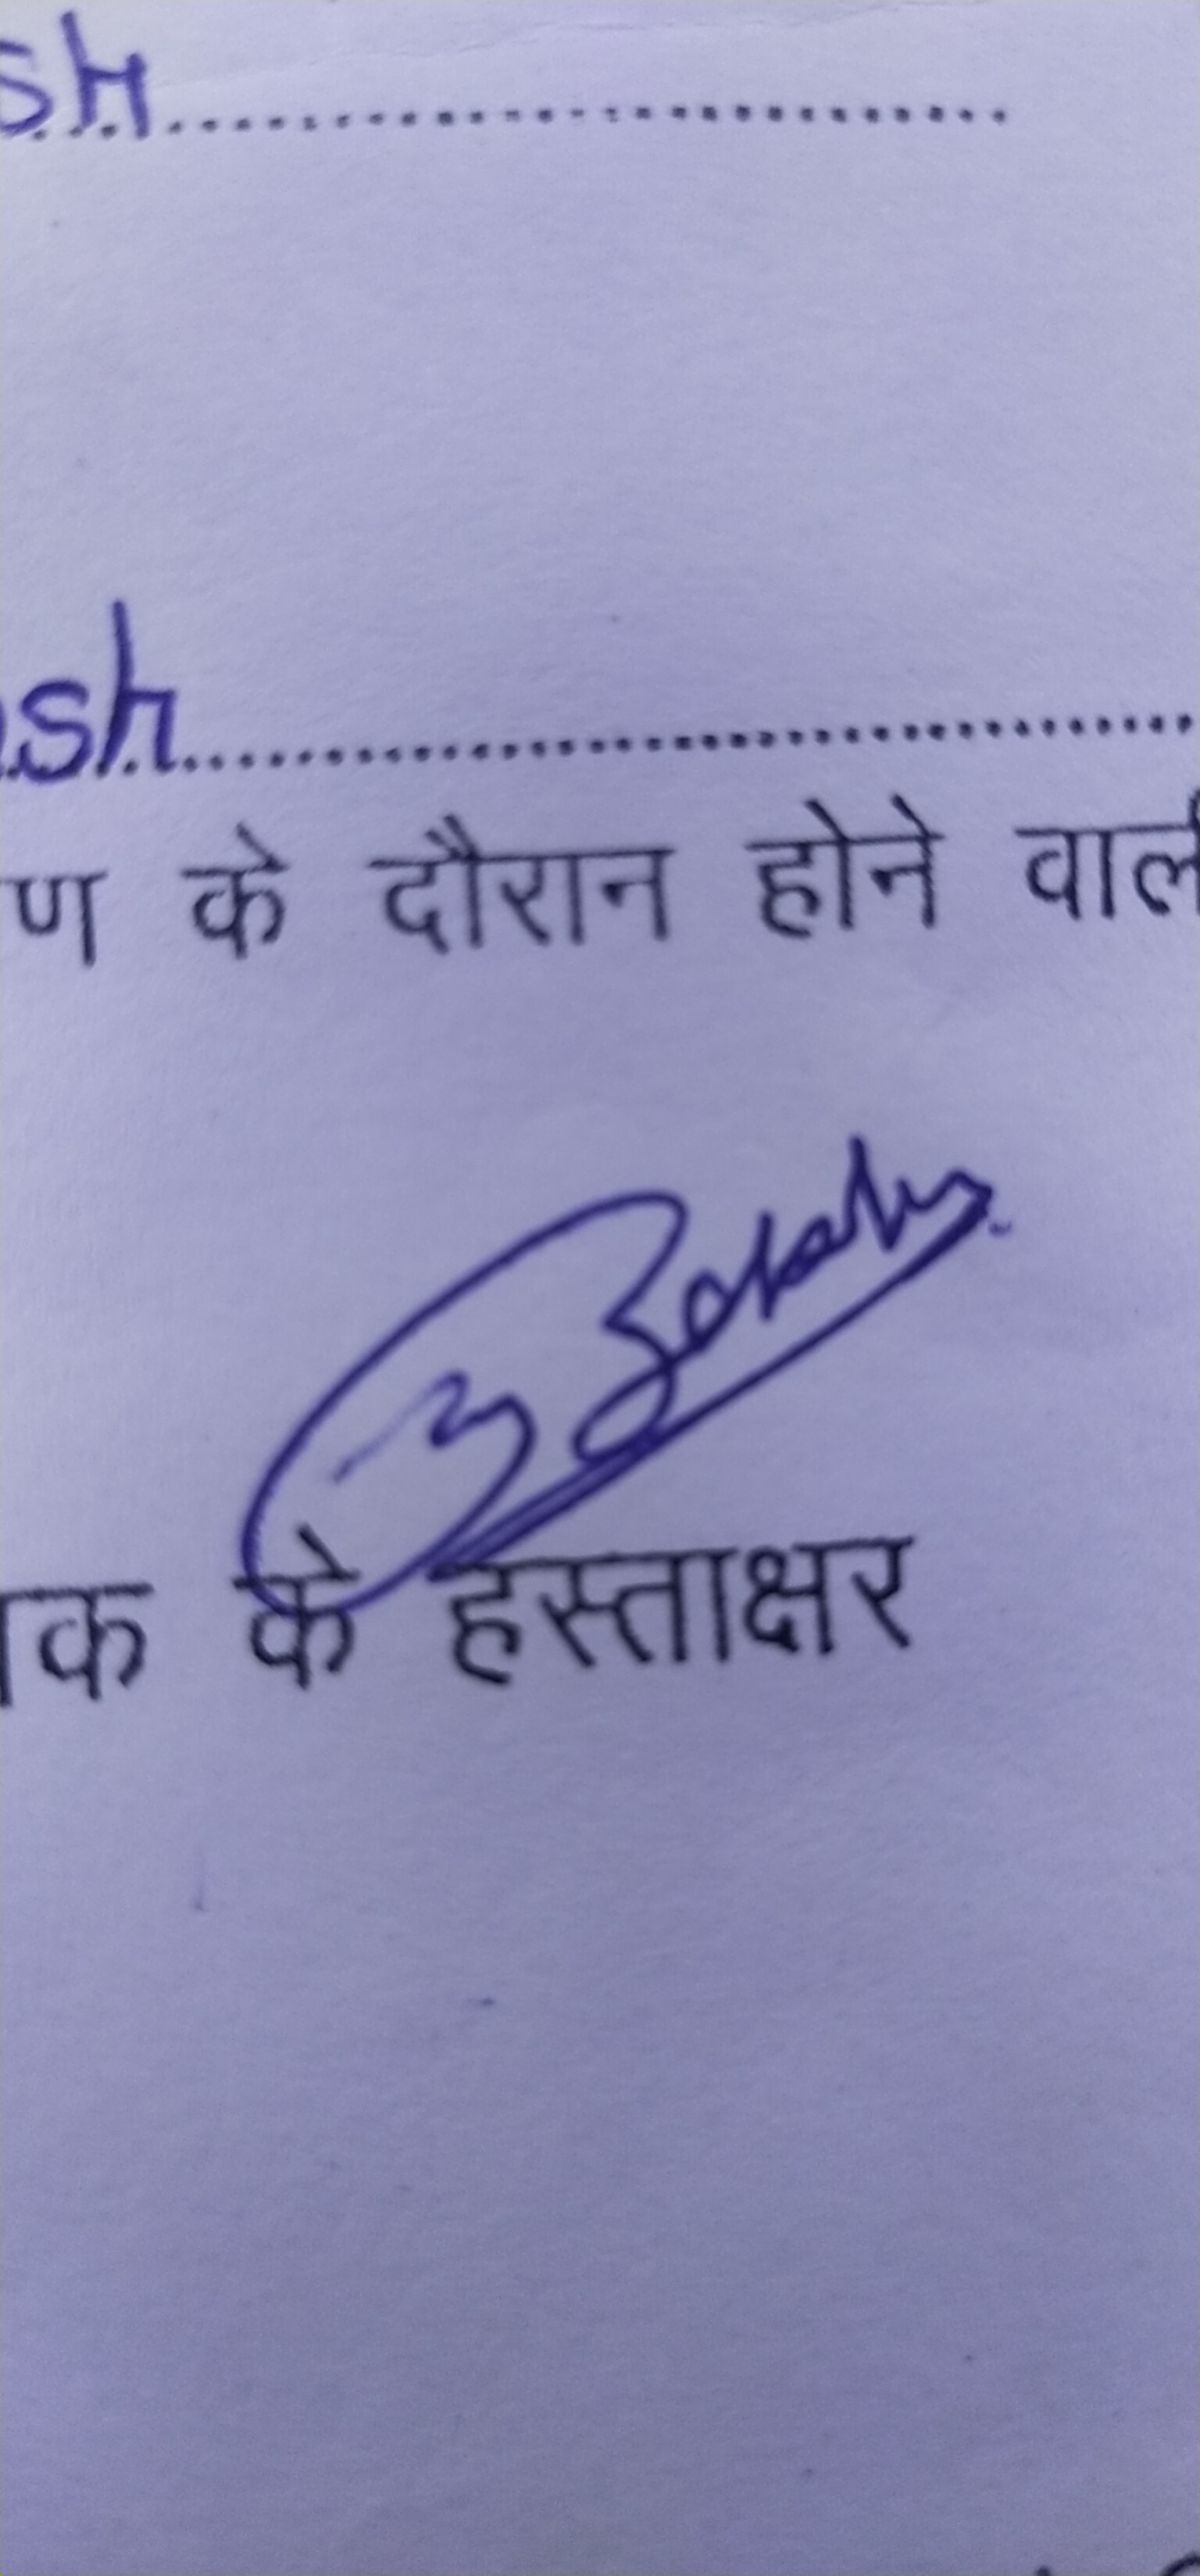 sh
sh
ण के दौरान होने वाल
क के हस्ताक्षर